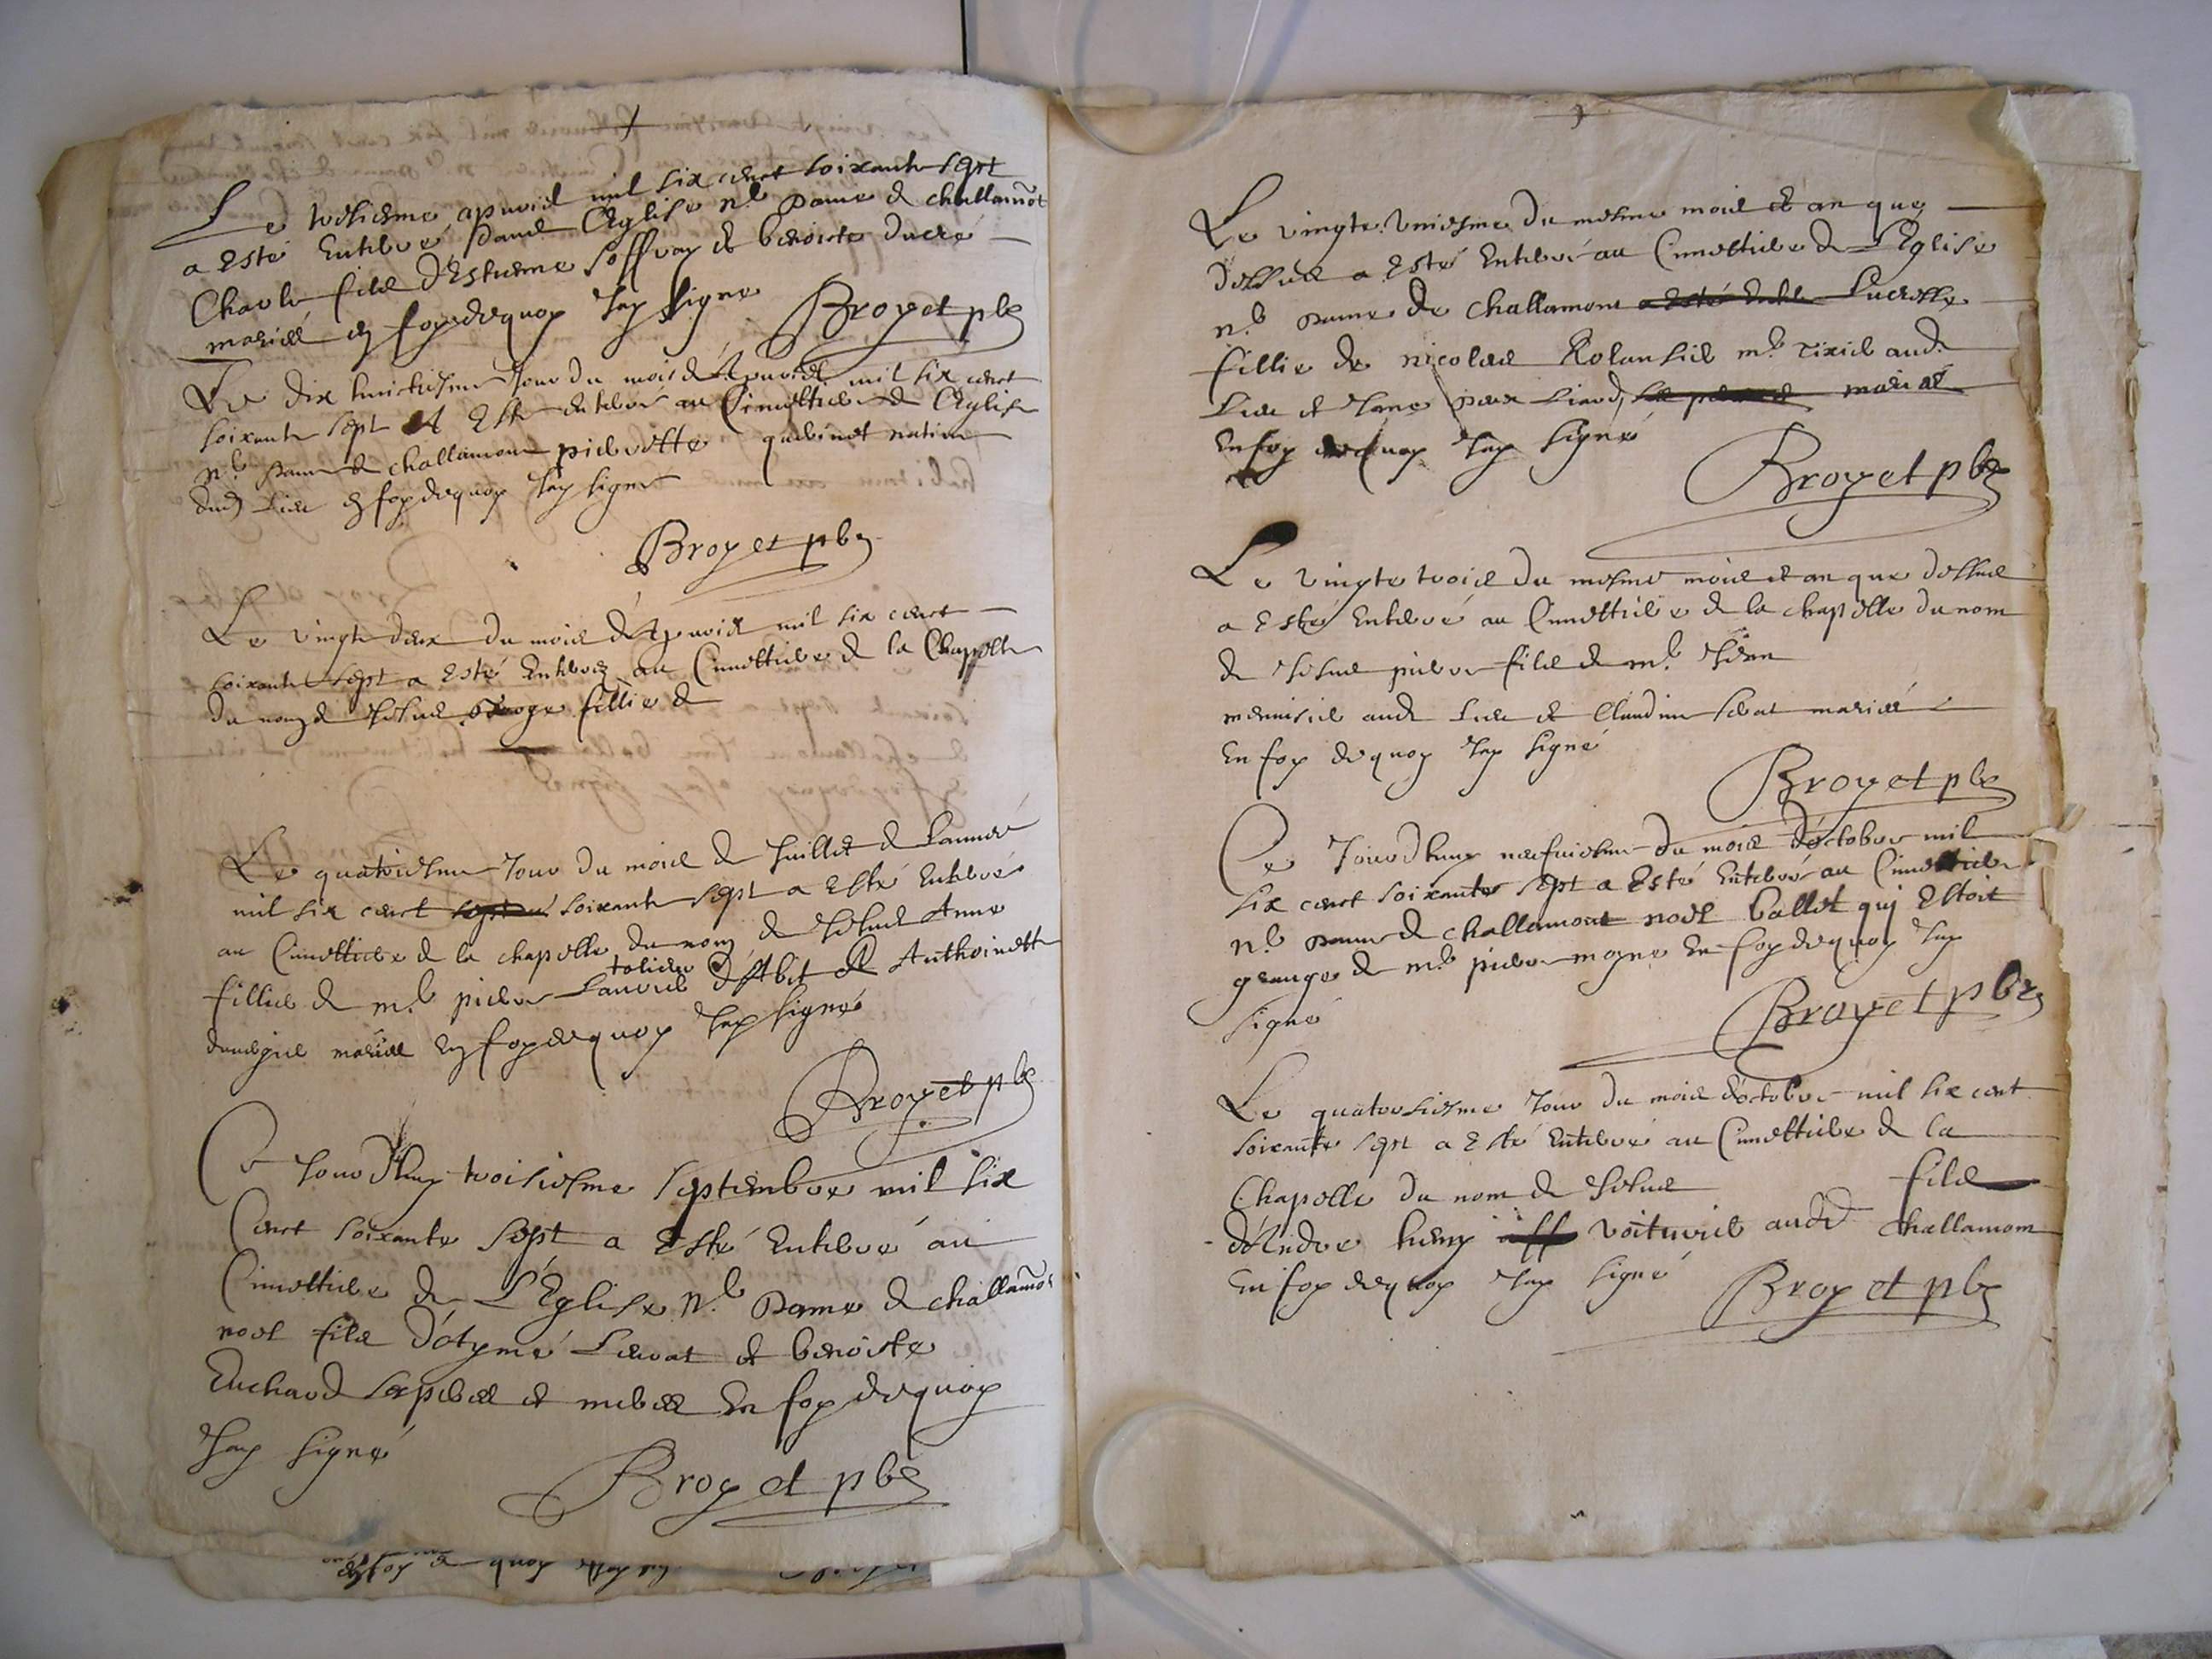 Le tresiesme apvril mil six cent soixante sept
a esté Enterré dans l'Eglise n.e Dame de challamõt
Charle fils d'Estienne Soffray et benoiste ducré
mariés en foy dequoy Jay signe Broyet pbr
Le dix huictiesme Jour du mois d'Apvril mil six cent
soixante sept A Esté enterré au Cimettiere de l'Eglise
n.e Dame de challamont pierrette quabinet native
dud Lieu en foy dequoy Jay signe
Broyet pbr
Le vingte deux du mois d'Apvril mil six cent
soixante sept a Esté Enterré au Cimettiere de la Chapelle
du nom de Jesus fillie de
Le quatriesme Jour du mois de Juillet de Lannée
mil six cent soixante sept a Esté Enterré
au Cimettiere de la chapelle du nom de Jesus Anne
fillie de m.e pierre Lauvrie tolier d'Abit et Anthoinette
mariés En foy dequoy Jay signé
Broyet pbr
Ce Jourdhuy troisiesme septembre mil six
Cent soixante sept a Esté Enterré au
Cimettiere de L'Eglise n.e Dame de challamõt
noel fils d'otymé Lievat et benoiste
Enchard ses peres et meres En foy dequoy
Jay signé
Broyet pbr
Le vingte uniesme du mesme mois et an que
dessus a Esté Enterré au Cimettiere de L'Eglise
n.e Dame de challamont Lucresse
fillie de nicolas Rolansie m.e Tixie aud.
Lieu et Jane mariés
En foy dequoy Jay signé
Broyet pbr
Le vingte trois du mesme mois et an que dessus
a Esté Enterré au Cimettiere de la chapelle du nom
de Jesus pierre fils de m.e Jean
menuisie aud Lieu et Claudine mariés
En foy dequoy Jay signé
Broyet pbr
Ce Jourdhuy neufviesme du mois d'octobre mil
six cent soixante sept a Esté Enterré au Cimettiere
n.e Dame de challamont noel ballet qui Estoit
grange de m.e pierre mogne En foy dequoy Jay
signé
Broyet pbr
Le quatorsiesme Jour du mois d'octobre mil six cent
soixante sept a Esté Enterré au Cimettiere de la
Chapelle du nom de Jesus fils
d'Andre henry voiturie aud challamont
En foy dequoy Jay signé Broyet pbr